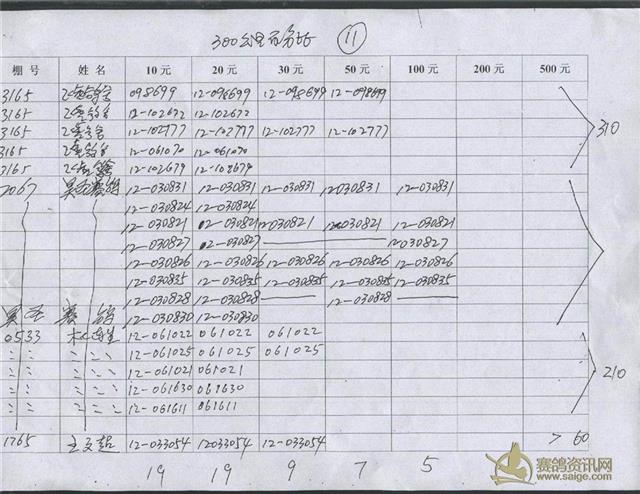 300公里 ⑪
棚号 姓名 10元 20元 30元 50元 100元 200元 500元
3165 098699 12-098699 12-098699 12-098699
3165 12-102672 12-102672
3165 12-102777 12-102777 12-102777 12-102777 310
3165 12-061070 12-061070
3165 12-102679
2067 12-030831 12-030831 12-030831 12030831 12-030831
12-030824 12-030824
12-030821 12-030821 12030821 030821 12-030821
12-030827 12-030827 12030827
12-030826 12-030826 12-030826 12-030826 12-030826
12-030835 12-030835 12-030835 12-030835 12-030835
12-030828 12-030828 12-030828
12-030830 12-030830
0533 12-061022 061022 061022
〃 〃 〃 〃 〃 12-061025 061025 061025
〃 〃 〃 〃 〃 12-061021 061021
〃 〃 〃 〃 〃 12-061630 061630 210
〃 〃 〃 〃 〃 12-061611 061611
1765 王文超 12-033054 12033054 12-033054 > 60
19 19 9 7 5
赛鸽资讯网
www.saige.com